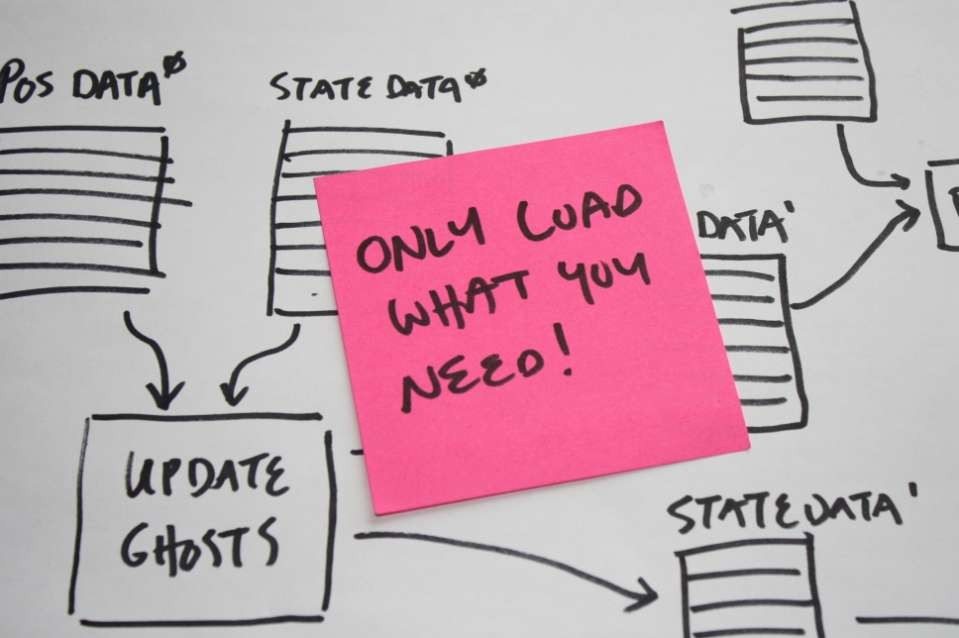 POS DATA⁰
STATE DATA⁰
ONLY LOAD
WHAT YOU
NEED!
DATA'
UPDATE
GHOSTS
STATE DATA'